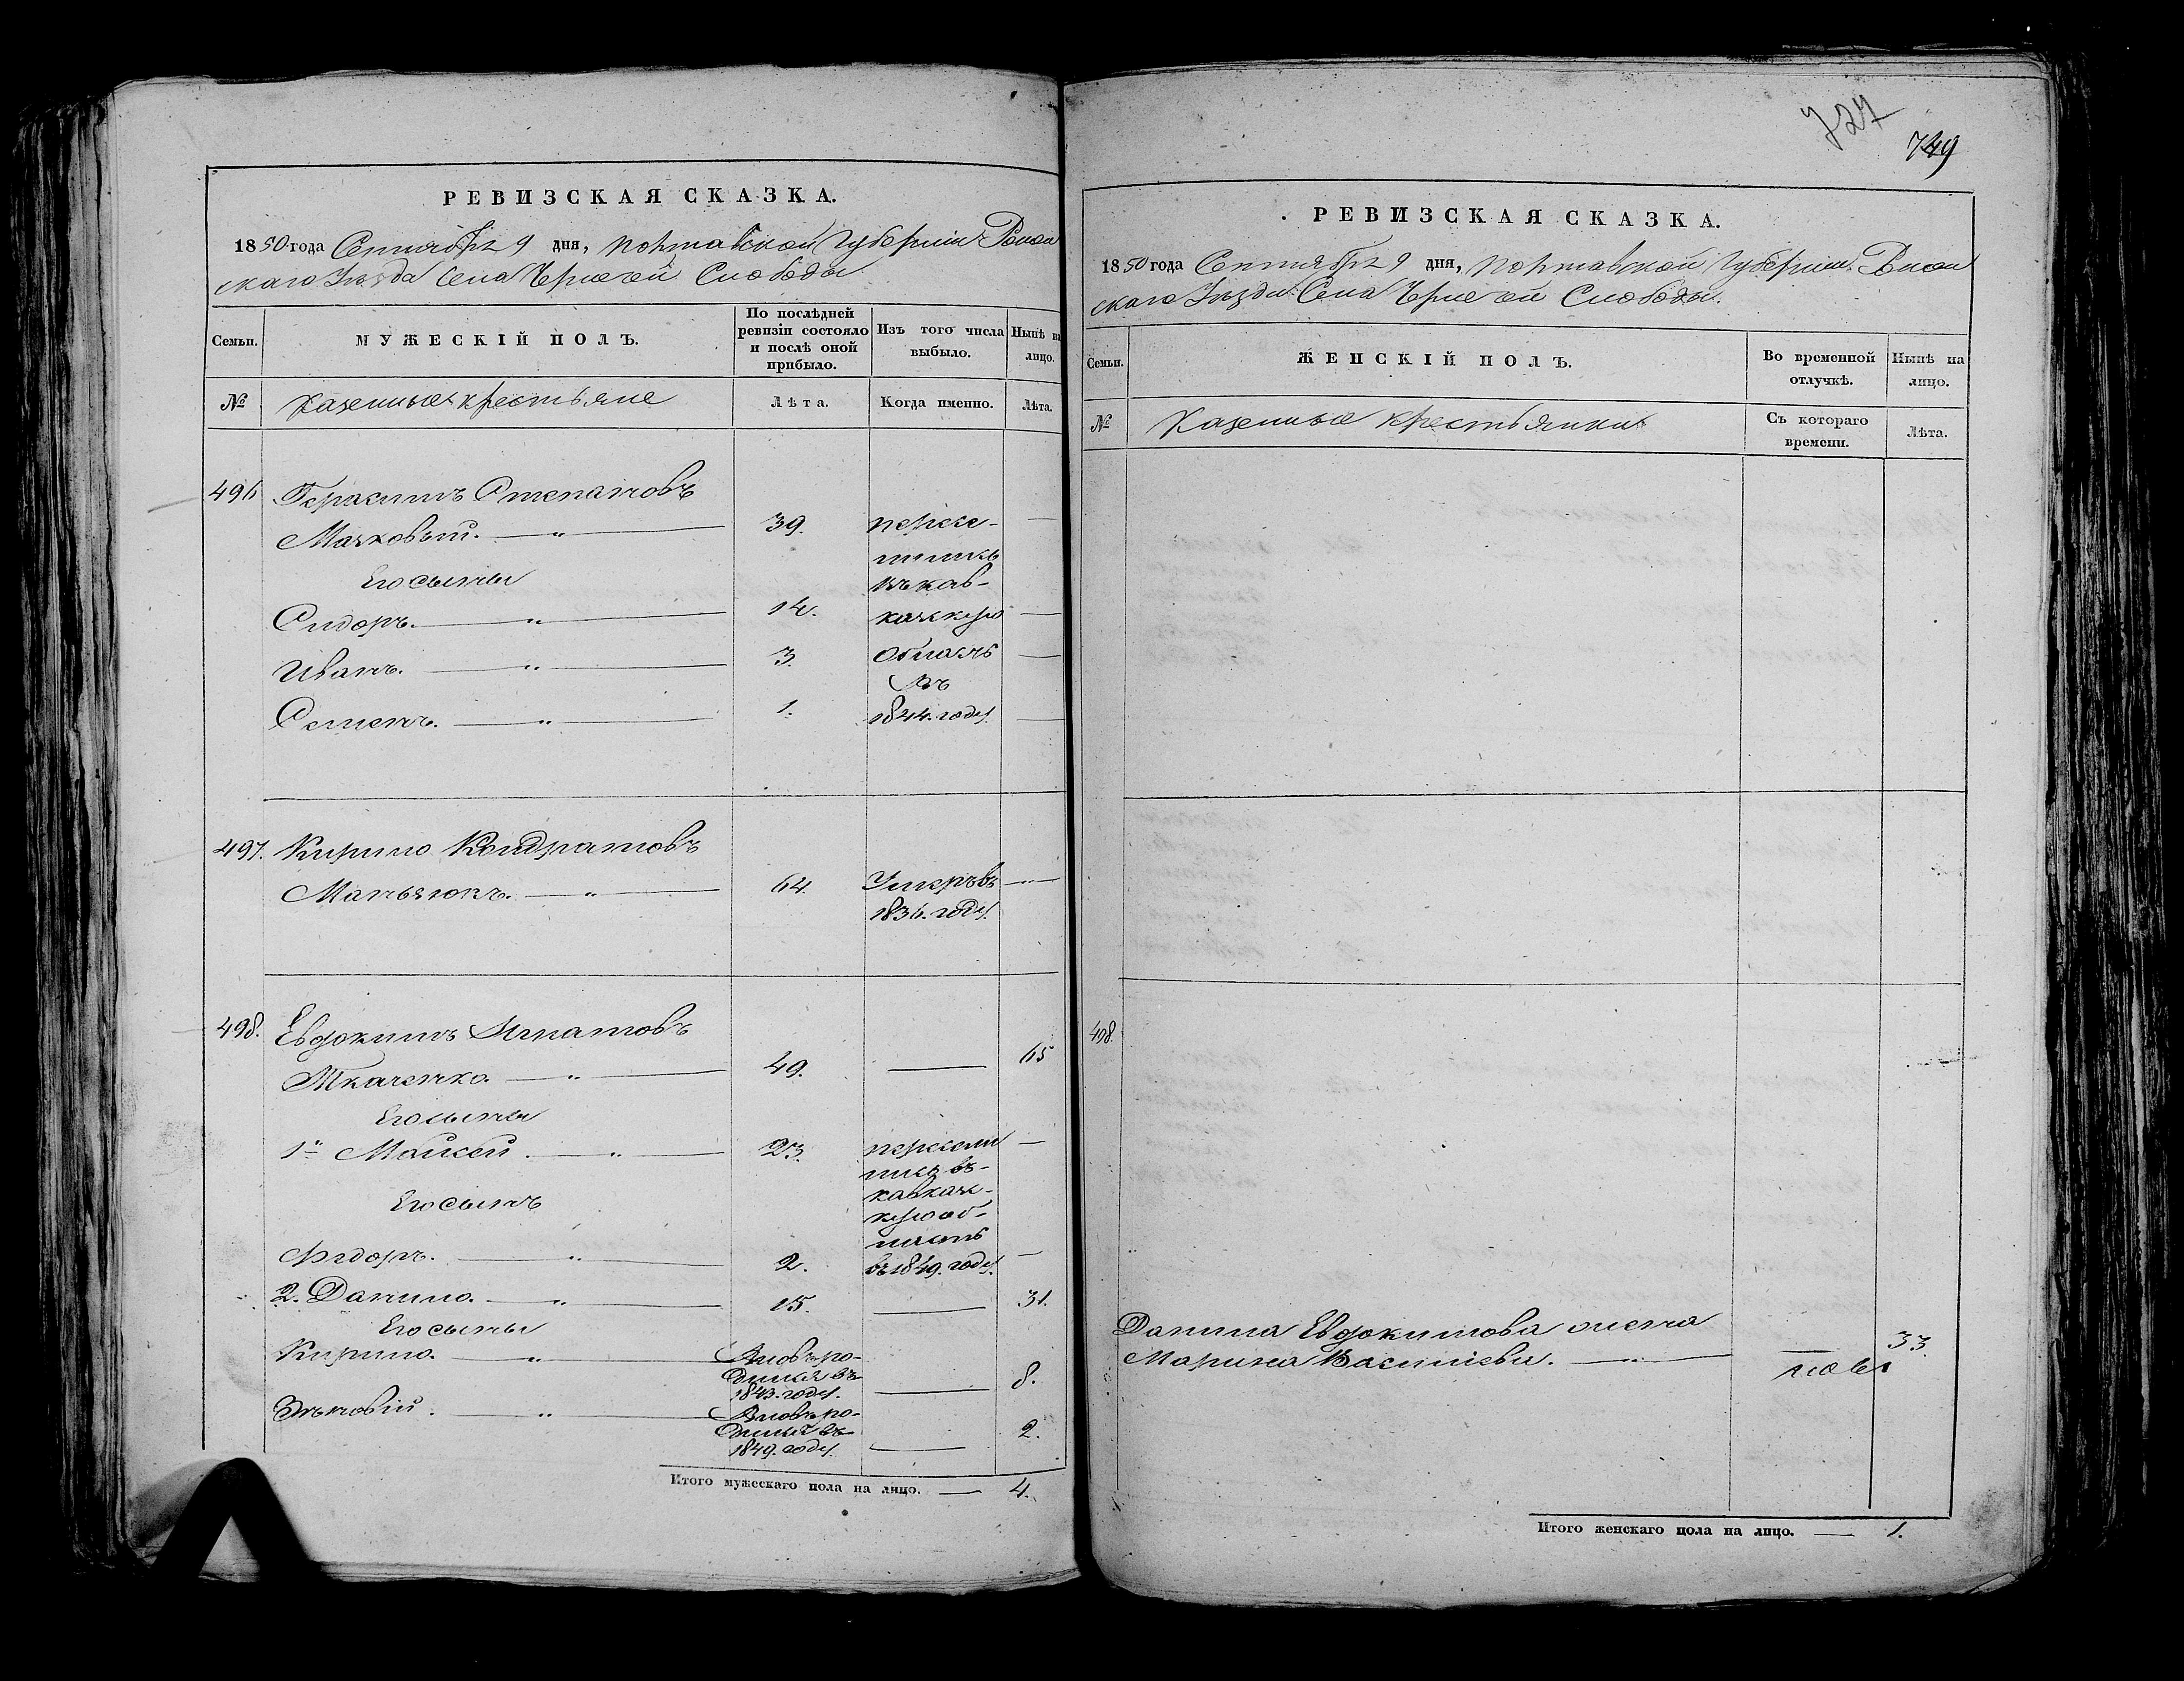 РЕВИЗСКАЯ СКАЗКА.
1850 года Сентября 9 дня, Полтавской Губернии Ромен
скаго Уезда Села Чернечей Слободы
Семьи. МУЖЕСКІЙ ПОЛЪ. По послѣдней ревизіи состояло и послѣ оной прибыло. Изъ того числа выбыло. Нынѣ на лицо.
№ Казенные крестьяне Лѣта. Когда именно. Лѣта.
496 Герасимъ Степановъ
39. пересе-
лились
Его сыны
въ кав-
Сидоръ. — " — 14. казскую —
Иванъ. — " — 3. область —
въ
Семенъ. — " — 1. 1844. году —
497. Кирило Кондратовъ
64. Умеръ въ —
1836. году.
498. Евдокимъ Игнатовъ
Ткаченко. — " — 49. — 65
Его сыны
1й Мойсей. — " — 23. переселил —
ись въ-
кавказс-
Его сынъ
кую об-
ласть
Федоръ. — " — 2. въ 1849. году. —
2. Данило. — " — 15. — 31.
Его сыны
Кирило. — " — Вновь ро-
дился въ
1843. году. — 8.
Вновь ро-
дился въ
1849. году. — 2.
Итого мужескаго пола на лицо. — 4.
727
749
РЕВИЗСКАЯ СКАЗКА.
1850 года Сентября 9 дня, Полтавской Губернии Ромен
скаго Уезда Села Чернечей Слободы.
Семьи. ЖЕНСКІЙ ПОЛЪ. Во временной отлучкѣ. Нынѣ на лицо.
№ Казенные крестьянки Съ котораго времени. Лѣта.
498.
Данила Евдокимова жена
Марина Васильева. — " — — 33.
Итого женскаго пола на лицо. — 1.